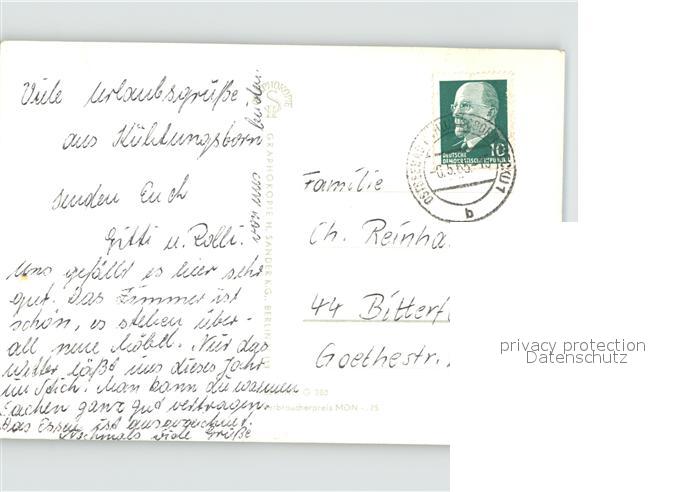 Viele Urlaubsgrüße
aus Kühlungsborn
senden Euch
Gitti u. Rolli.
Uns gefällt es hier sehr
gut. Das Zimmer ist
schön, es stehen über-
all neue Möbel. Nur das
Wetter läßt uns dieses Jahr
im Stich. Man kann die warmen
Sachen ganz gut vertragen.
Das Essen ist ausgezeichnet.
Nochmals viele Grüße
von uns beiden.
GRAPHOKOPIE H. SANDER KG., BERLIN
Verbraucherpreis MDN -.25
DEUTSCHE
DEMOKRATISCHE REPUBLIK
10
OSTSEEBAD KÜHLUNGSBORN
b
Familie
Ch. Reinha
44 Bitterf
Goethestr.
privacy protection
Datenschutz